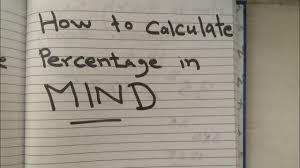 How to Calculate
Percentage in
MIND